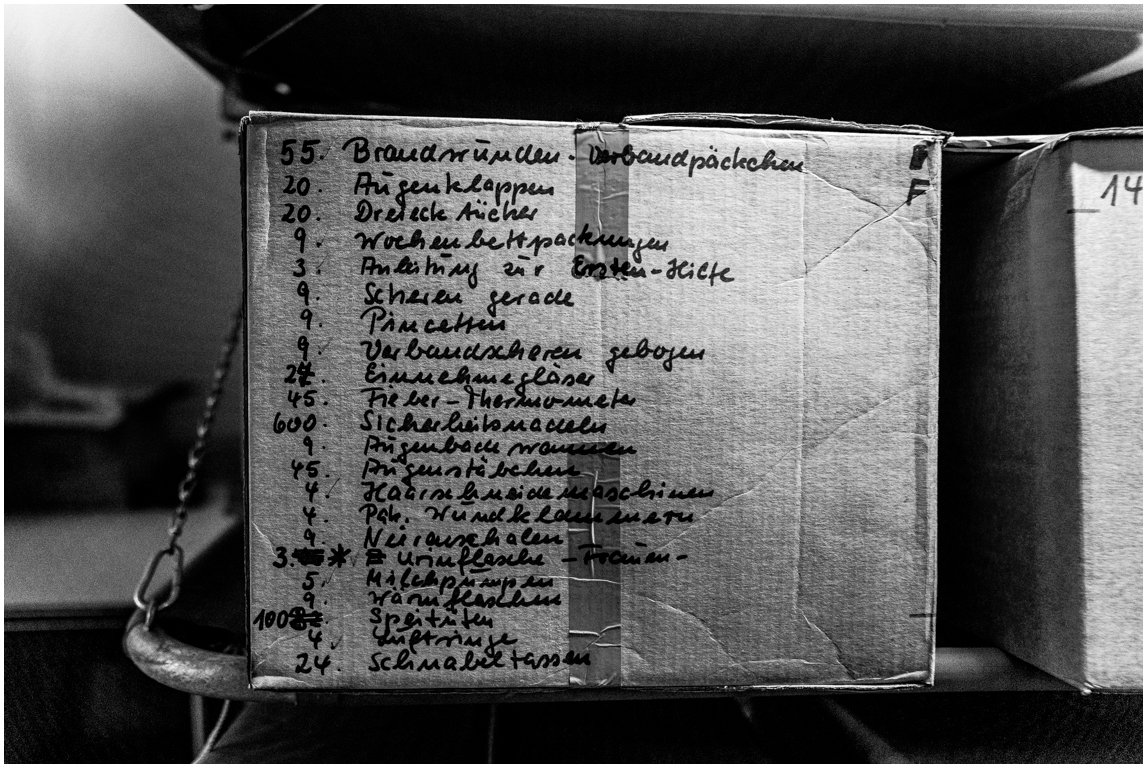 55. Brandwunden. Verbandpäckchen
F
20. Augenklappen
20. Dreieck tücher
9. Wochenbettpackungen
3. Anleitung zur Ersten-Hilfe
9. Scheren gerade
9. Pincetten
9. Verbandscheren gebogen
27. Einnehmegläser
45. Fieber-Thermometer
600. Sicherheitsnadeln
9. Augenbade wannen
45. Augenstäbchen
4. Haarschneidemaschinen
4. Pak. Wundklammern
9. Nierenschalen
3. * Urinflasche -Frauen-
5. Milchpumpen
9. Wärmflaschen
100 Speitüten
4. Luftringe
24. Schnabeltassen
14